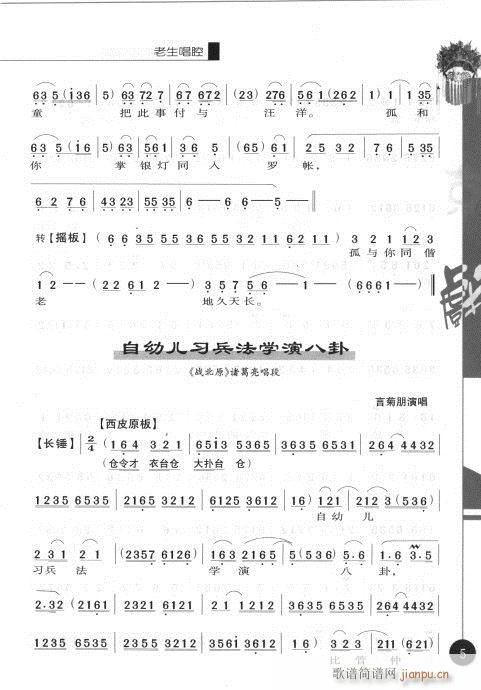 老生唱腔
6 3 5 (i 3 6 | 5) 6 3 7 2 7 | 6 7 6 6 7 | (2 3) 2 7 6 | 5 6 1 (2 6 2 | 1) 1 3 5
童 把此事付与 汪洋。 孤和
6 3 5 (i 6 | 5) 3 3 5 1 2 | 6 5 1 2
你 掌银灯同入 罗帐,
6 2 7 6 | 4 3 2 3 5 5 | 6 — 6 6 — 5 — ‖
转【摇板】 ( 6 6 3 5 5 5 3 6 5 5 3 2 1 1 6 2 1 1 ) 3 2 1 1 2 3
孤与你同偕
1 2 — — — 2 3 — 5 7 5 6 — 1 — (6 6 6 1 —) ‖
老 地久天长。
自幼儿习兵法学演八卦
《战北原》诸葛亮唱段
言菊朋演唱
【西皮原板】
【长锤】 2/4 ( 1 6 4 3 2 1 | 6 5 i 3 5 3 6 5 | 3 6 3 5 6 5 3 1 | 2 6 4 4 4 3 2
(仓令才 衣台仓 大扑台 仓)
1 2 3 5 6 5 3 5 | 2 1 6 5 3 2 1 2 | 3 6 3 5 6 5 3 5 | 2 1 6 5 3 2 1 2 | 1 6 ) 1 2 1 | 2 1 2 3 (5 3 5)
自 幼 儿
2 3 1 2 1 | (2 3 5 7 6 1 2 6) | 1 6 3 2 1 6 5 | 5 (5 3 6) 5 . 6 | 1 . 6 3 . 5
习兵 法 学 演 八 卦,
2 . 3 2 (2 1 6 1 | 2 1 2 1 6 1 2 1 | 3 5 3 5 6 5 3 1 | 2 6 4 4 4 3 2
1 2 3 5 6 5 3 5 | 2 1 6 5 3 2 1 2 | 3 5 6 i 3 6 1 2 | 1 6 ) 3 2 3 | 2 1 1 (6 2 1)
比 管 仲
5
歌谱简谱网 jianpu.cn